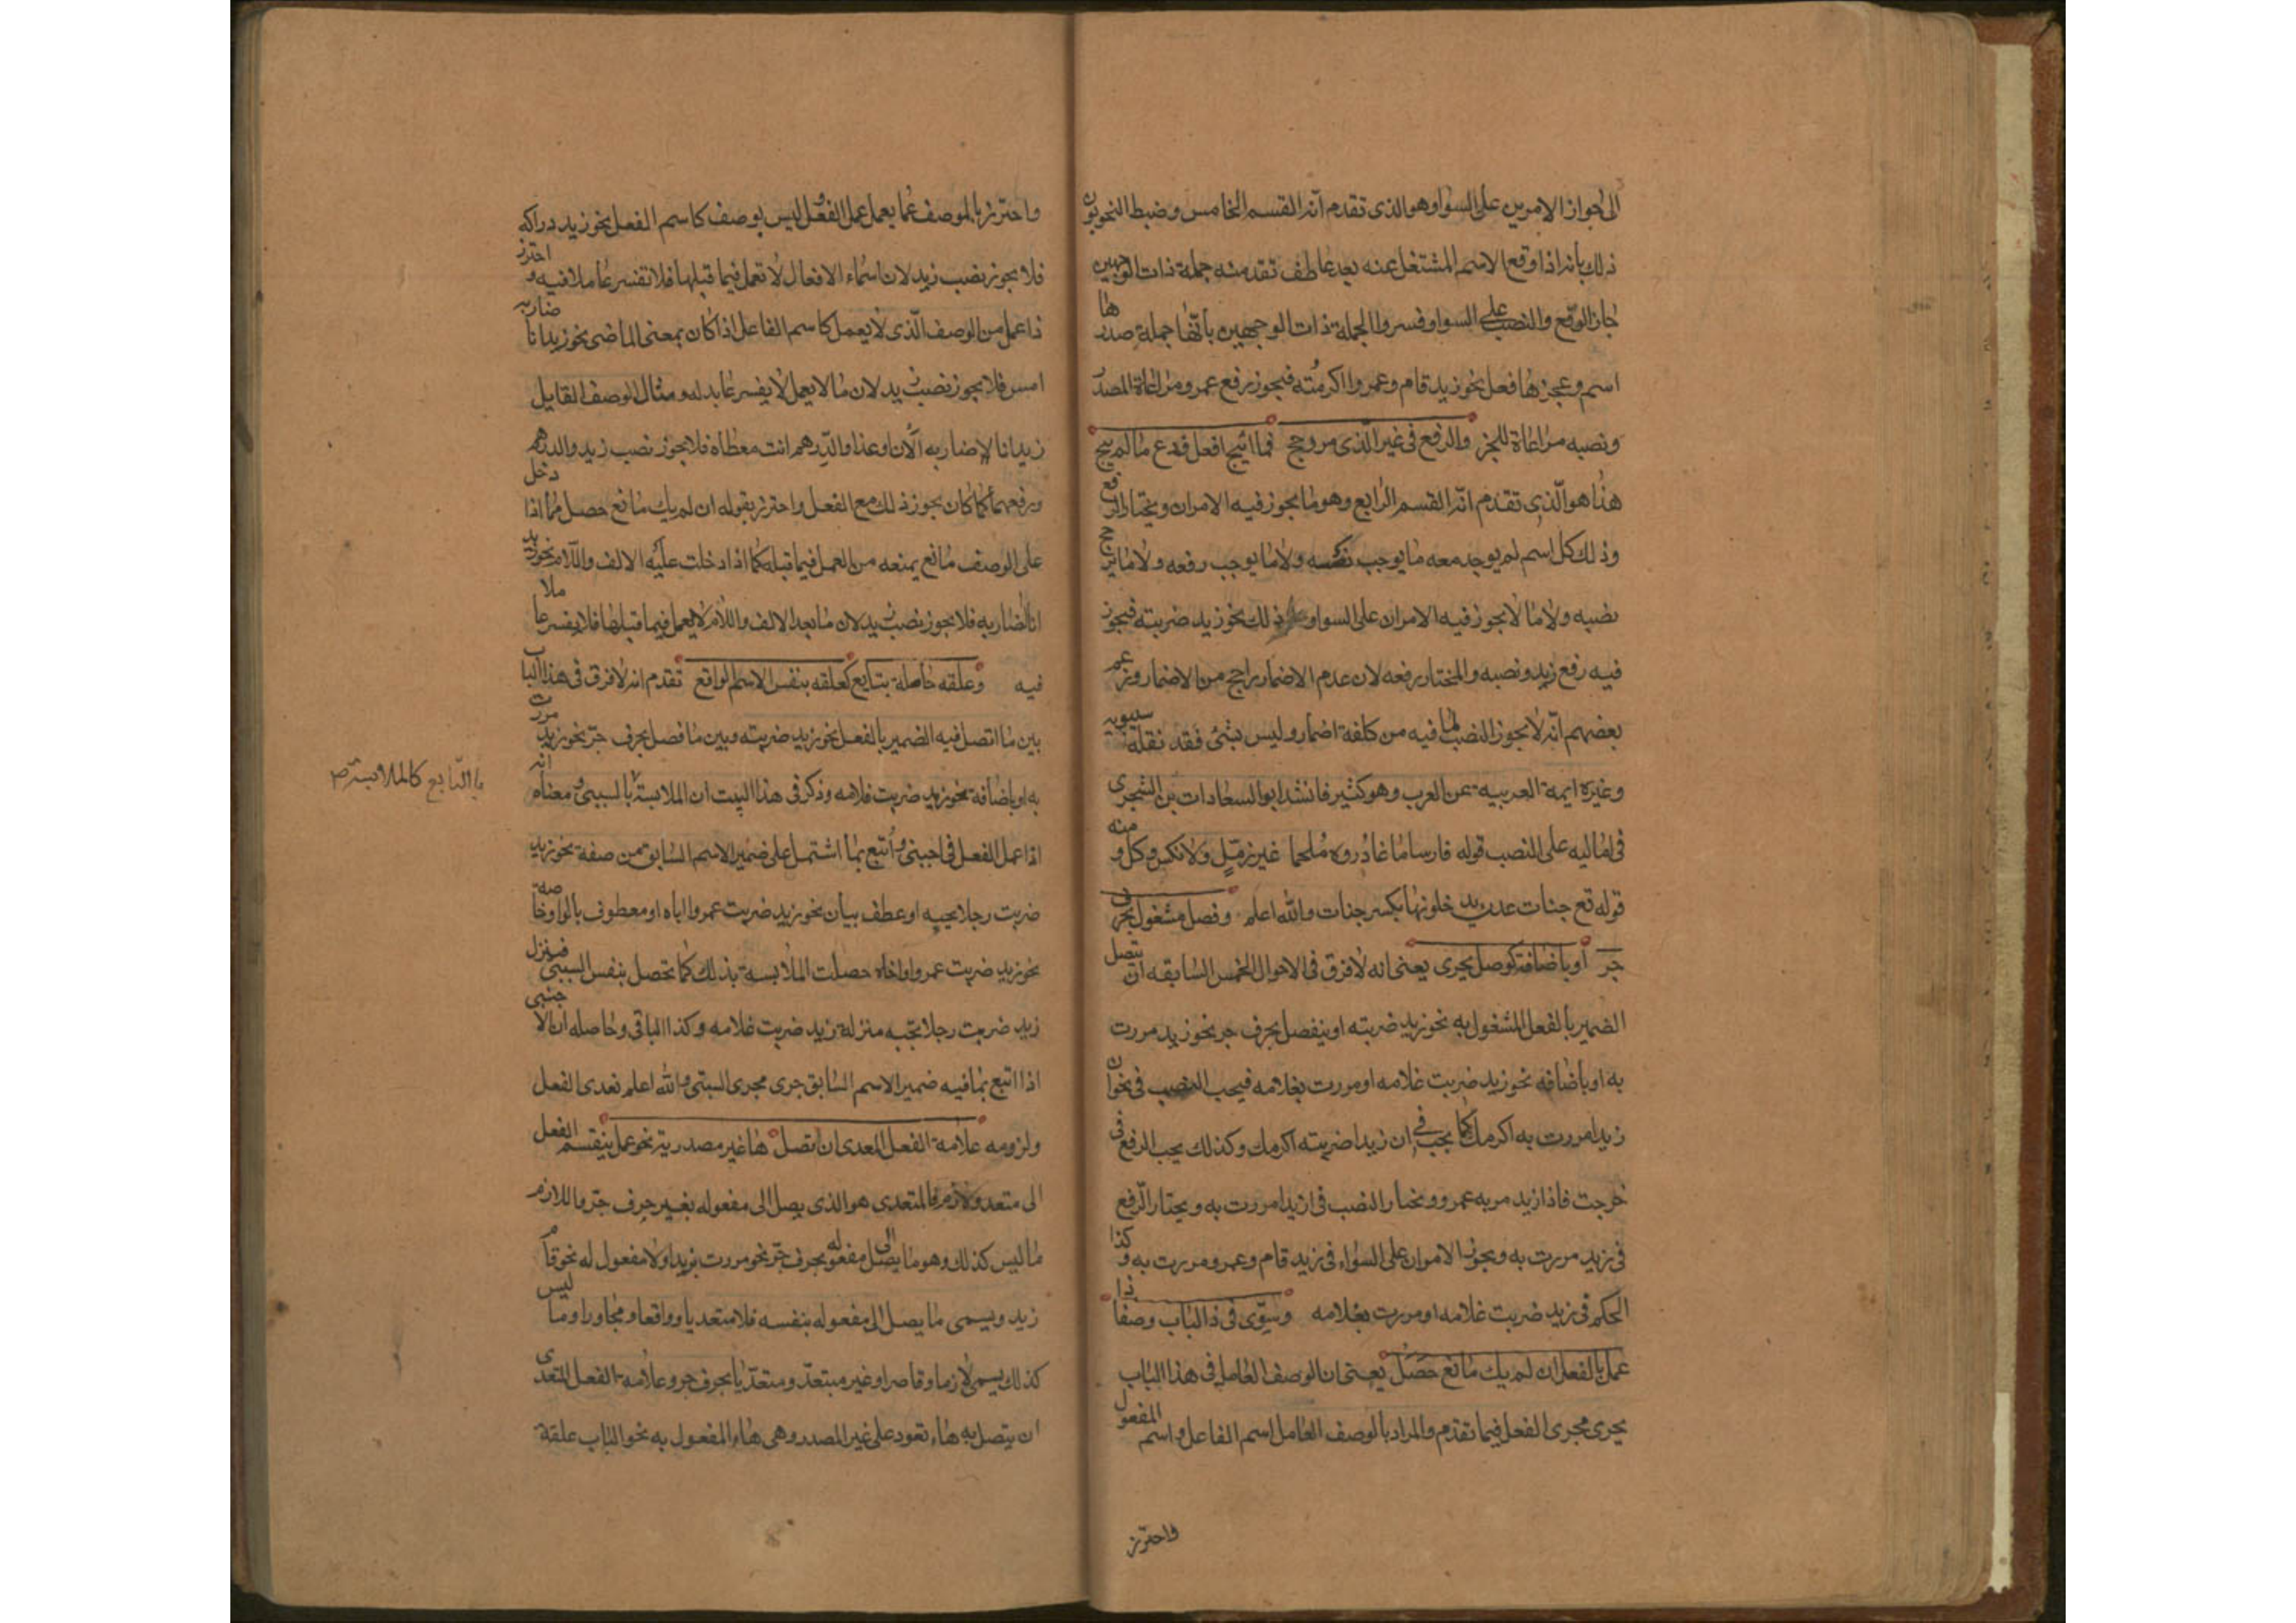 الى جواز الامرين على السواء وهو الذى تقدم انه القسم الخامس وضبط النحويون
ذلك بانه اذا وقع الاسم المشتغل عنه بعد عاطف تقدمته جملة ذات الوجهين
جاز الرفع والنصب على السواء وفسروا الجملة ذات الوجهين بأنها جملة صدرها
اسم وعجزها فعل نحو زيد قام وعمروا اكرمته فيجوز رفع عمرو مراعاة للصدر
ونصبه مراعاة للعجز والرفع فى غير الذى مر رجح فما ابيح افعل ودع ما لم يبح
هذا هو الذى تقدم انه القسم الرابع وهو ما يجوز فيه الامران ويختار الرفع
وذلك كل اسم لم يوجد معه ما يوجب نصبه ولا ما يوجب رفعه ولا ما يرجح
نصبه ولا ما لا يجوز فيه الامران على السواء وذلك نحو زيد ضربته فيجوز
فيه رفع زيد ونصبه والمختار رفعه لان عدم الاضمار راجح من الاضمار وزعم
بعضهم انه لا يجوز النصب لما فيه من كلفة اضمار وليس بشئ فقد نقله سيبويه
وغيره ايمة العربيه عن العرب وهو كثير فانشد ابو السعادات بن الشجرى
فى اماليه على النصب قوله فارسا ما غادروه ملحما غير زميل ولا نكس وكل ومنه
قوله تع جنات عدن يدخلونها بكسر جنات والله اعلم وفصل مشغول بحرف
جر أو باضافة كوصل يجرى يعنى انه لا فرق فى الاحوال الخمس السابقه ان يتصل
الضمير بالفعل المشغول به نحو زيد ضربته او ينفصل بحرف جر نحو زيد مررت
به او باضافه نحو زيد ضربت غلامه او مررت بغلامه فيجب النصب فى نحو ان
زيدا مررت به اكرمك كما يجب فى ان زيدا ضربته اكرمك وكذلك يجب الرفع فى
خرجت فاذا زيد مر به عمرو ويختار النصب فى ازيدا مررت به ويختار الرفع
فى زيد مررت به ويجوز الامران على السواء فى زيد قام وعمرو مررت به وكذا
الحكم فى زيد ضربت غلامه او مررت بغلامه وسوّى فى ذا الباب وصفا ذا
عمل بالفعل ان لم يك مانع حصل يعنى ان الوصف العامل فى هذا الباب
يجرى مجرى الفعل فيما تقدم والمراد بالوصف العامل اسم الفاعل واسم المفعول
واحترز
واحترز بالوصف عما يعمل عمل الفعل وليس بوصف كاسم الفعل نحو زيد دراكه
فلا يجوز نصب زيد لان اسماء الافعال لا تعمل فيما قبلها فلا تفسر عاملا فيه واحترز
ذا عمل من الوصف الذى لا يعمل كاسم الفاعل اذا كان بمعنى الماضى نحو زيد انا ضاربه
امس فلا يجوز نصب زيد لان ما لا يعمل لا يفسر عابد له ومثال الوصف القابل
زيد انا ضاربه الآن او غدا والدّرهم انت معطاه فلا يجوز نصب زيد والدرهم
ورفعهما كما كان يجوز ذلك مع الفعل واحترز بقوله ان لم يك مانع حصل مما اذا دخل
على الوصف مانع يمنعه من العمل فيما قبله كما اذا دخلت عليه الالف واللام نحو زيد
انا الضاربه فلا يجوز نصب زيد لان ما بعد الالف واللام لا يعمل فيما قبلها فلا يفسر عاملا
فيه وعلقه حاصلة بتابع كعلقه بنفس الاسم الواقع تقدم انه لا فرق فى هذا الباب
بين ما اتصل فيه الضمير بالفعل نحو زيد ضربته وبين ما فصل بحرف جرّ نحو زيد مررت
به او باضافة نحو زيد ضربت غلامه وذكر فى هذا البيت ان الملابسة بالسببى ومعناه انه
بالتابع كالملابسة
اذا عمل الفعل فى اجنبى وأتبع بما اشتمل على ضمير الاسم السابق من صفة نحو زيد
ضربت رجلا يحبه او عطف بيان نحو زيد ضربت عمروا اباه او معطوف بالواو خاصة
نحو زيد ضربت عمروا واخاه حصلت الملابسة بذلك كما تحصل بنفس السببى فينزل
زيد ضربت رجلا يحبه منزلة زيد ضربت غلامه وكذا الباقى وحاصله ان الاجنبى
اذا اتبع بما فيه ضمير الاسم السابق جرى مجرى السببى والله اعلم تعدى الفعل
ولزومه علامة الفعل المعدى ان تصل ها غير مصدر به نحو عمل ينقسم الفعل
الى متعد ولازم فالمتعدى هو الذى يصل الى مفعوله بغير حرف جرّ واللازم
ما ليس كذلك وهو ما يصل الى مفعوله بحرف جرّ نحو مررت بزيد او لا مفعول له نحو قام
زيد ويسمى ما يصل الى مفعوله بنفسه فلا متعديا وواقعا ومجاوزا وما ليس
كذلك يسمى لازما وقاصرا وغير متعدّ ومتعدّيا بحرف جر وعلامة الفعل المتعدى
ان يتصل به هاء تعود على غير المصدر وهى هاء المفعول به نحو الباب علقة